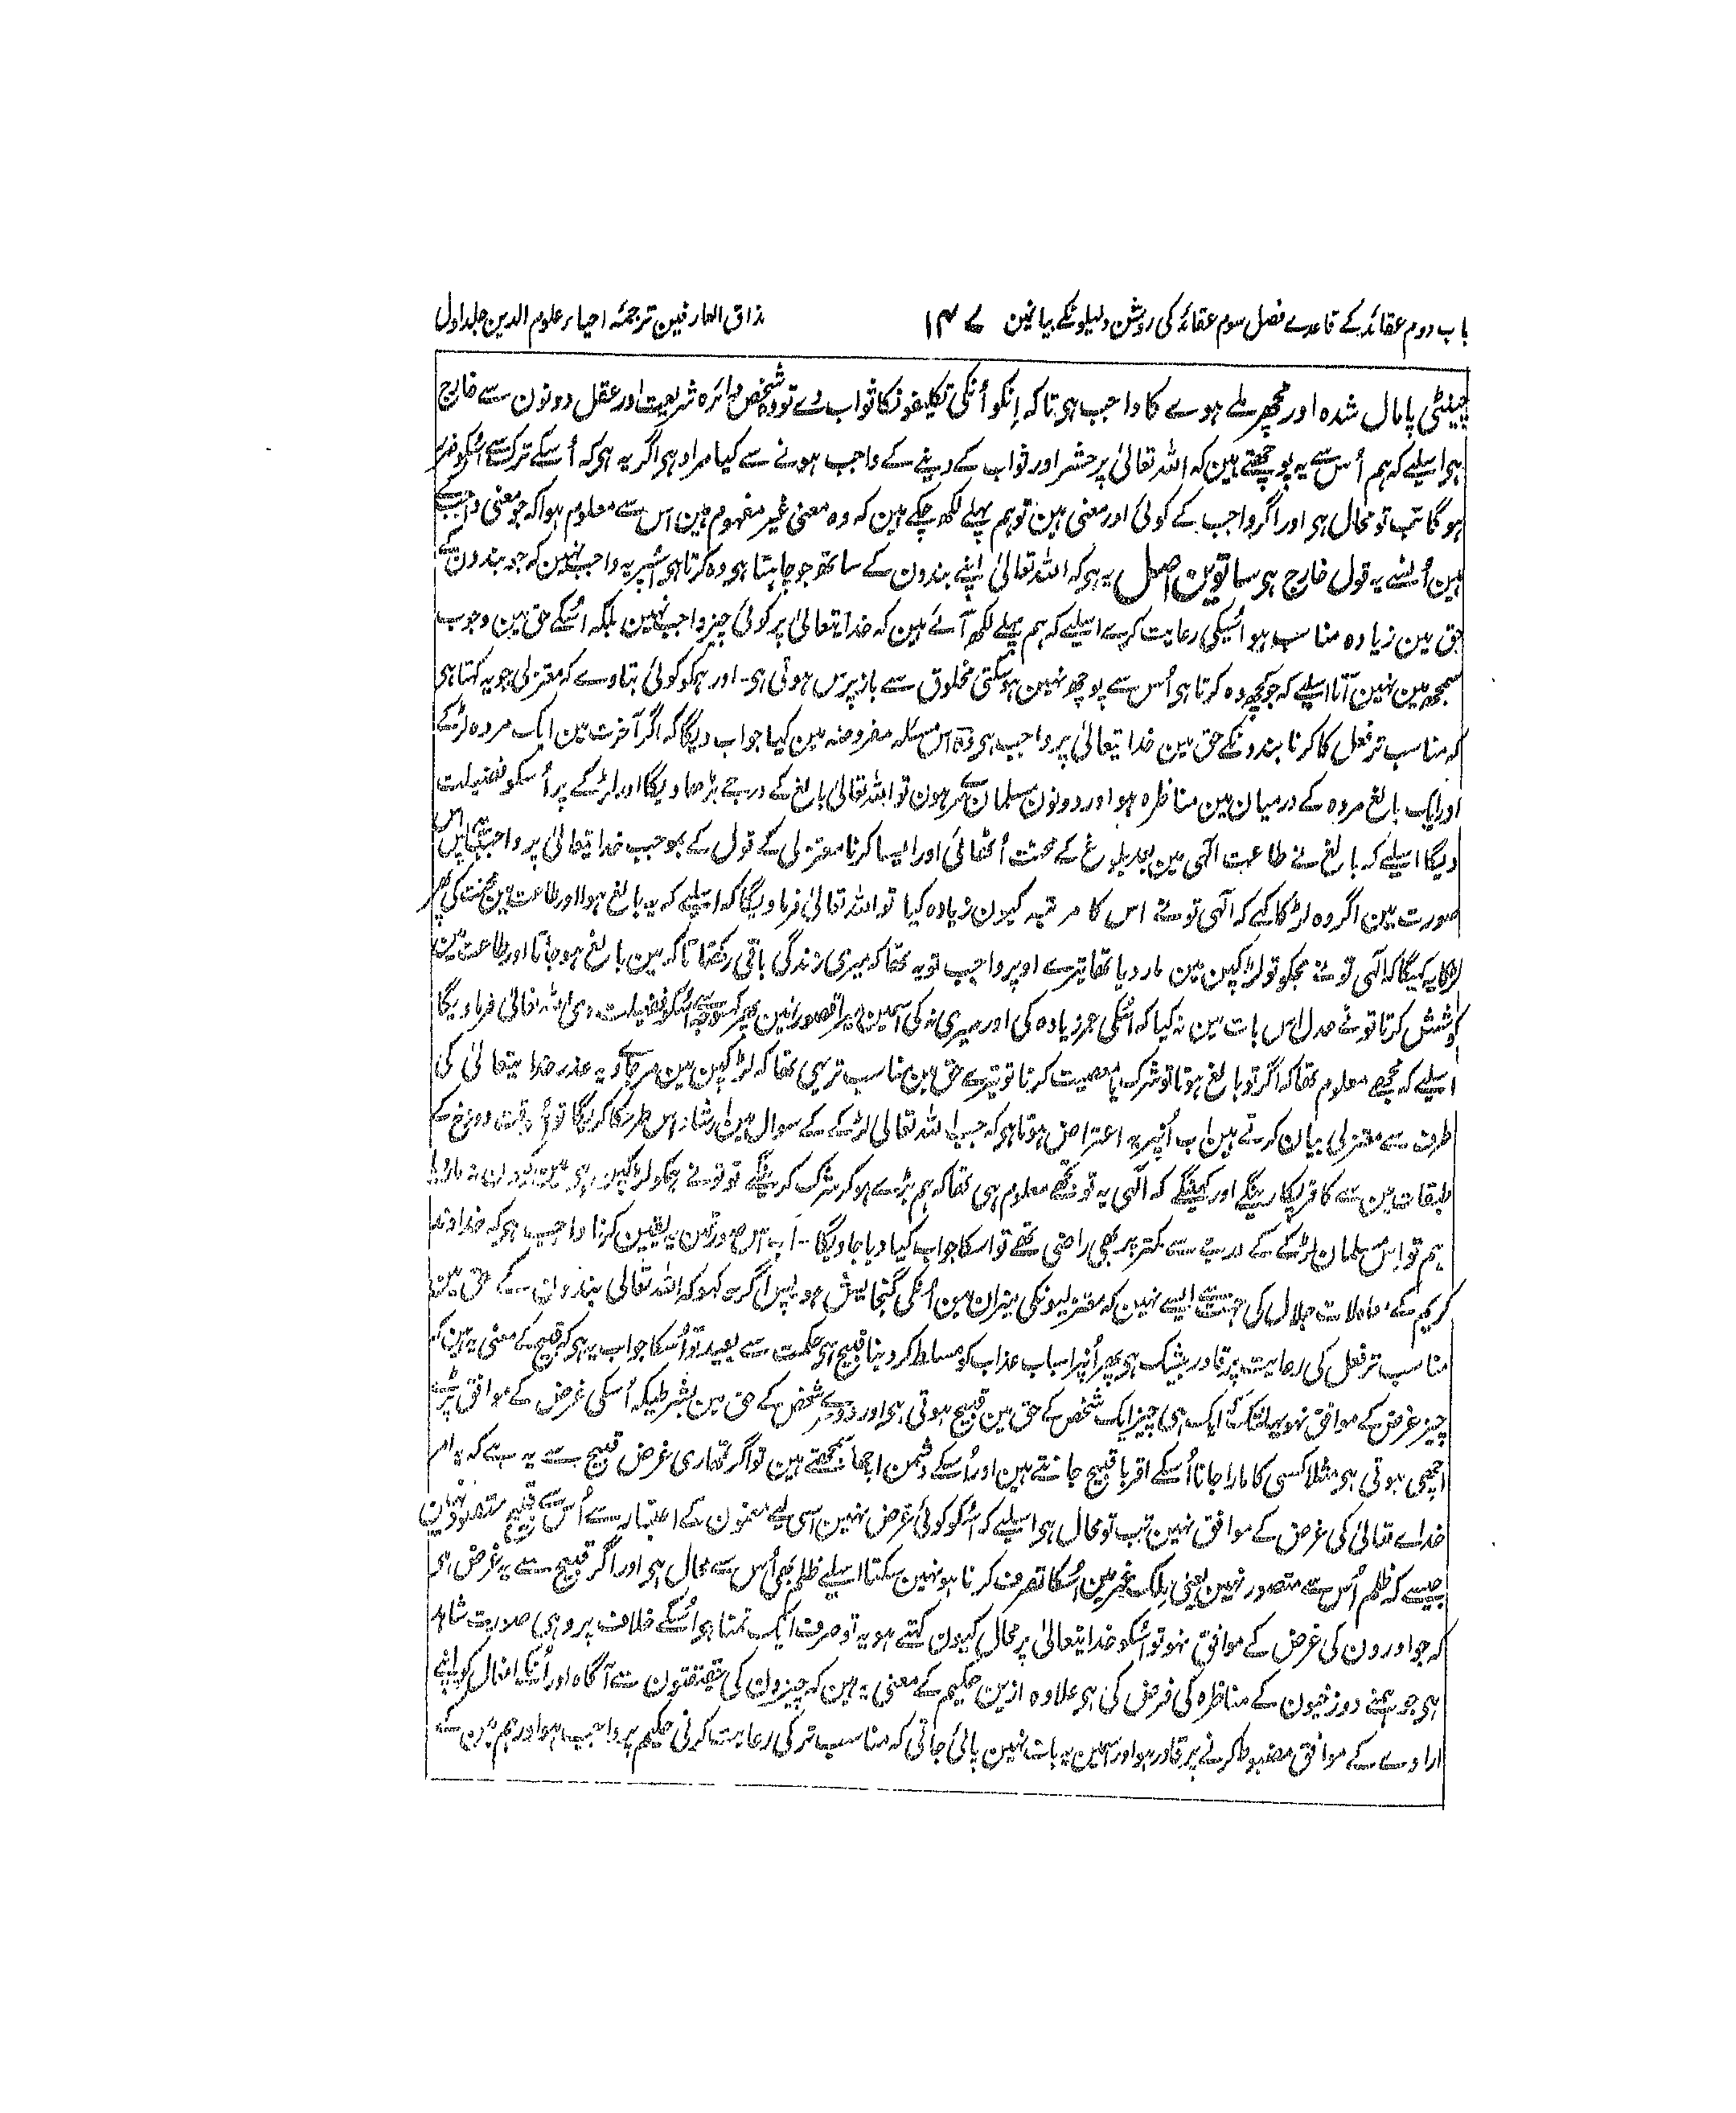 باب دوم عقائد کے قاعدے فصل سوم عقائد کی روشن دلیلونکے بیانمین ۱۴۷ مذاق العارفین ترجمۂ احیاء علوم الدین جلد اول
چیونٹی پامال شدہ اور مچھر ملے ہوے کا واجب ہی تاکہ انکو اُنکی تکلیفونکا ثواب دے تو وہ شخص دائرہ شریعت اور عقل دونون سے خارج
ہی اسلیے کہ ہم اُس سے یہ پوچھتے ہین کہ اللہ تعالیٰ پر حشر اور ثواب کے دینے کے واجب ہونے سے کیا مراد ہی اگر یہ ہی کہ اُسکے ترک سے اُسکو ضرر
ہوگا تب تو محال ہی اور اگر واجب کے کوئی اور معنی ہین تو ہم پہلے لکھ چکے ہین کہ وہ معنی غیر مفہوم ہین اس سے معلوم ہوا کہ جو معنی واجب کے
ہین اُنسے یہ قول خارج ہی ساتوین اصل یہ ہی کہ اللہ تعالیٰ اپنے بندون کے ساتھ جو چاہتا ہی وہ کرتا ہی اُسپر یہ واجب نہین کہ جو بندون کے
حق مین زیادہ مناسب ہو اُسیکی رعایت کرے اسلیے کہ ہم پہلے لکھ آئے ہین کہ خدایتعالیٰ پر کوئی چیز واجب نہین بلکہ اُسکے حق مین وجوب
سمجھ مین نہین آتا اسلیے کہ جو کچھ وہ کرتا ہی اُس سے پوچھ نہین ہوسکتی مخلوق سے بازپرس ہوتی ہی۔ اور ہمکو کوئی بتاوے کہ معتزلی جو یہ کہتا ہی
کہ مناسب تر فعل کا کرنا بندونکے حق مین خدایتعالیٰ پر واجب ہی وہ اس مسئلہ مفروضہ مین کیا جواب دیگا کہ اگر آخرت مین ایک مردہ لڑکے
اور ایک بالغ مردہ کے درمیان مین مناظرہ ہو اور دونون مسلمان مرے ہون تو اللہ تعالیٰ بالغ کے درجے بڑھا دیگا اور لڑکے پر اُسکو فضیلت
دیگا اسلیے کہ بالغ نے طاعت الٰہی مین بعد بلوغ کے محنت اُٹھائی اور ایسا کرنا معتزلی کے قول کے بموجب خدایتعالیٰ پر واجب ہی پس اس
صورت مین اگر وہ لڑکا کہے کہ الٰہی تونے اس کا مرتبہ کیون زیادہ کیا تو اللہ تعالیٰ فرماویگا کہ اسلیے کہ یہ بالغ ہوا اور طاعت مین محنت کی پھر
لڑکا یہ کہیگا کہ الٰہی تونے مجکو تو لڑکپن مین مار دیا تھا تیرے اوپر واجب تو یہ تھا کہ میری زندگی باقی رکھتا تاکہ مین بالغ ہوجاتا اور طاعت مین
کوشش کرتا تونے عدل اس بات مین نہ کیا کہ اُسکی عمر زیادہ کی اور میری نہ کی اسمین میرا قصور نہین پھر کس وجہ سے اُسکو فضیلت دی اللہ تعالیٰ فرماویگا
اسلیے کہ مجھے معلوم تھا کہ اگر تو بالغ ہوتا تو شرک یا معصیت کرتا تو تیرے حق مین مناسب تر یہی تھا کہ لڑکپن مین مرجاوے یہ عذر خدایتعالیٰ کی
طرف سے معتزلی بیان کرتے ہین اب اُنپر یہ اعتراض ہوتا ہی کہ جب اللہ تعالیٰ لڑکے کے سوال مین ارشاد اس طرحکا کریگا تو اُسوقت دوزخ کے
طبقات مین سے کافر پکارینگے اور کہینگے کہ الٰہی یہ تو تجھے معلوم ہی تھا کہ ہم بڑے ہوکر شرک کرینگے تو تونے ہمکو لڑکپن ہی مین کیون نہ مار دیا
ہم تو اس مسلمان لڑکے کے درجے سے کمتر پر بھی راضی تھے تو اسکا جواب کیا دیا جاویگا ۔ اب اس صورت مین یہ یقین کرنا واجب ہی کہ خداوند
کریم کے معاملات جلال کی جہت سے ایسے نہین کہ معتزلیونکی میزان مین اُنکی گنجایش ہو پس اگر یہ کہو کہ اللہ تعالیٰ بندون کے حق مین
مناسب تر فعل کی رعایت پر قادر بیشک ہی پھر اُنپر اسباب عذاب کو مسلط کر دینا قبیح ہی حکمت سے بعید تو اُسکا جواب یہ ہی کہ قبیح کے معنی یہ ہین کہ
چیز غرض کے موافق نہو یہانتک کہ ایک ہی چیز ایک شخص کے حق مین قبیح ہوتی ہی اور دوسرے شخص کے حق مین بشرطیکہ اُسکی غرض کے موافق پڑے
اچھی ہوتی ہی مثلا کسی کا مارا جانا اُسکے اقربا قبیح جانتے ہین اور اُسکے دشمن اچھا سمجھتے ہین تو اگر تمہاری غرض قبیح سے یہ ہے کہ یہ امر
خداے تعالیٰ کی غرض کے موافق نہین تب تو محال ہی اسلیے کہ اُسکو کوئی غرض نہین اسی لیے معنون کے اعتبار سے اُس سے قبیح متصور نہین
جیسے کہ ظلم اُس سے متصور نہین یعنی ملک غیر مین اُسکا تصرف کرنا ہو نہین سکتا اسلیے ظلم بھی اُس سے محال ہی اور اگر قبیح سے یہ غرض ہی
کہ جو اورون کی غرض کے موافق نہو تو اُسکو خدایتعالیٰ پر محال کیون کہتے ہو یہ تو صرف ایک تمنا ہی اُسکے خلاف پر وہی صورت شاہد
ہی جو ہمنے دوزخیون کے مناظرہ کی فرض کی ہی علاوہ ازین حکیم کے معنی یہ ہین کہ چیزون کی حقیقتون سے آگاہ اور اُنکے افعال کو اپنے
ارادے کے موافق مضبوط کرنے پر قادر ہو اور اسمین یہ بات نہین پائی جاتی کہ مناسب تر کی رعایت کرنی حکیم پر واجب ہو اور ہم مین کے